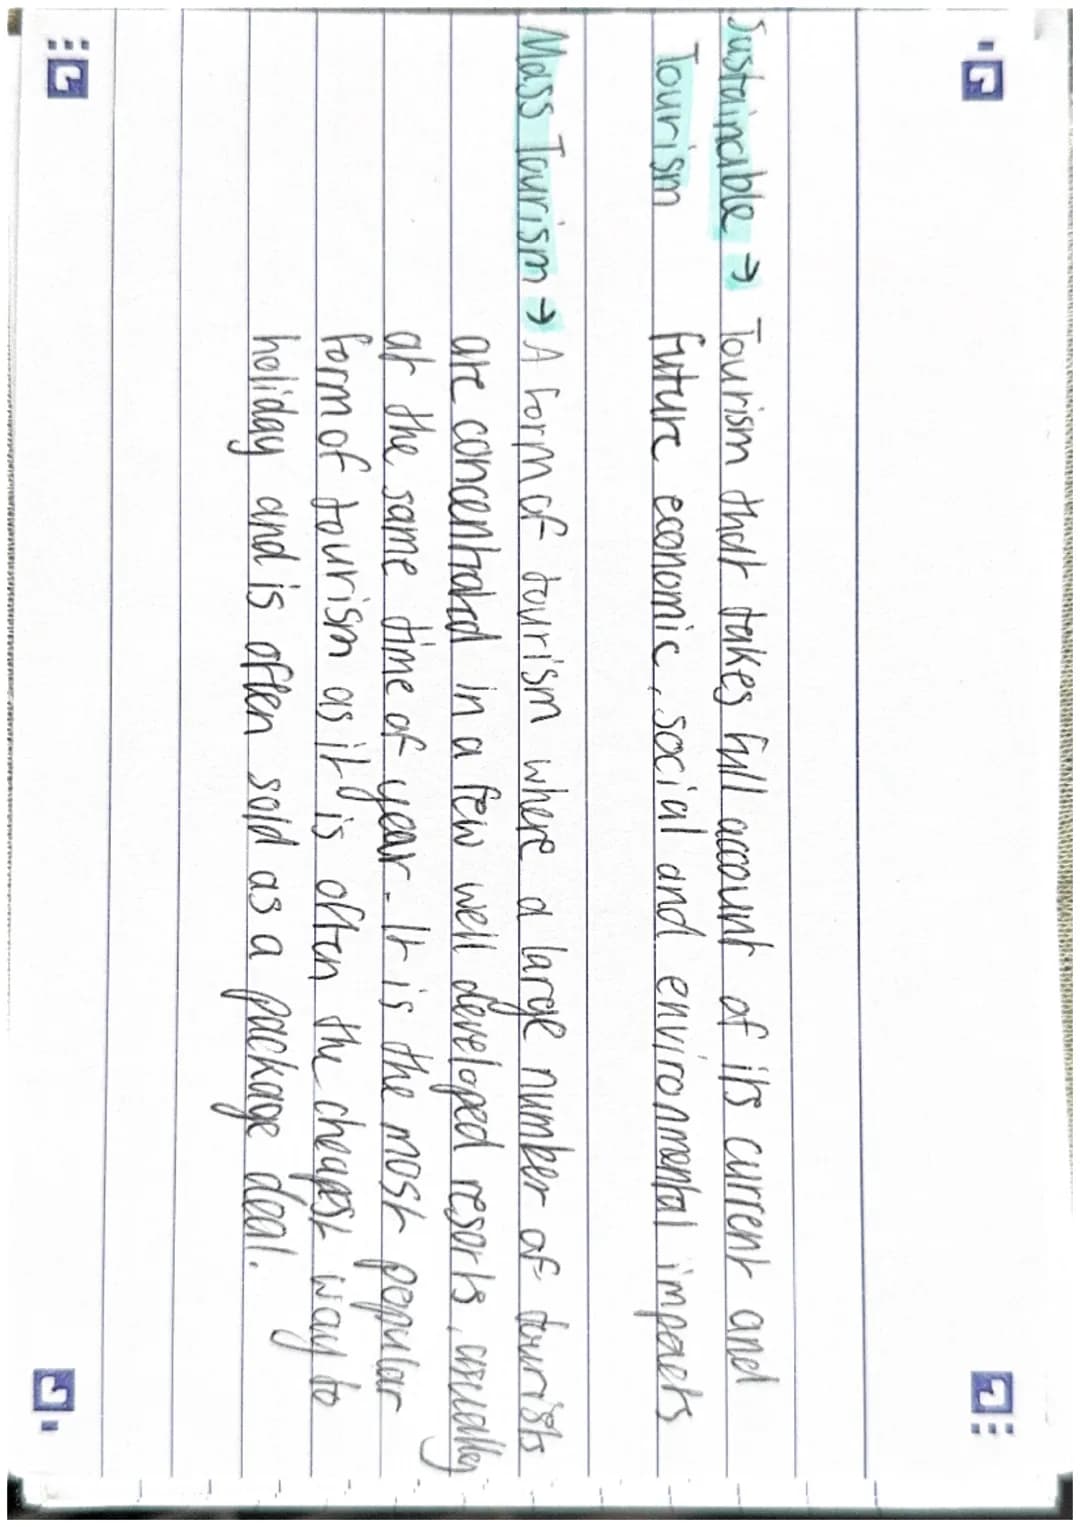 Sustainable → Tourism that takes full account of its current and
Tourism future economic, social and environmental impacts
Mass Tourism → A form of tourism where a large number of tourists
are concentrated in a few well developed resorts, usually
at the same time of year. It is the most popular
form of tourism as it is often the cheapest way to
holiday and is often sold as a package deal.